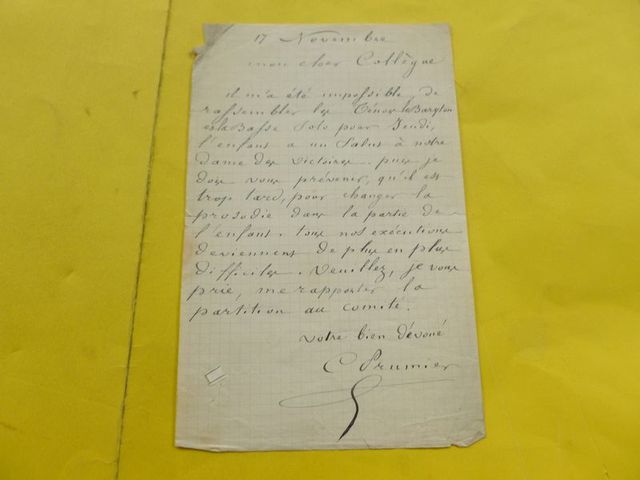 17 Novembre
mon cher Collègue
il m'a été impossible, de
rassembler les Ténor le Baryton
et la Basse Solo pour Jeudi,
l'enfant a un Salut à notre
dame des Victoires. puis je
dois vous prévenir, qu'il est
trop tard, pour changer la
prosodie dans la partie de
l'enfant. tous nos exécutions
deviennent de plus en plus
difficiles. Veuillez, je vous
prie, me rapporter la
partition au comité.
votre bien dévoué
C Prumier